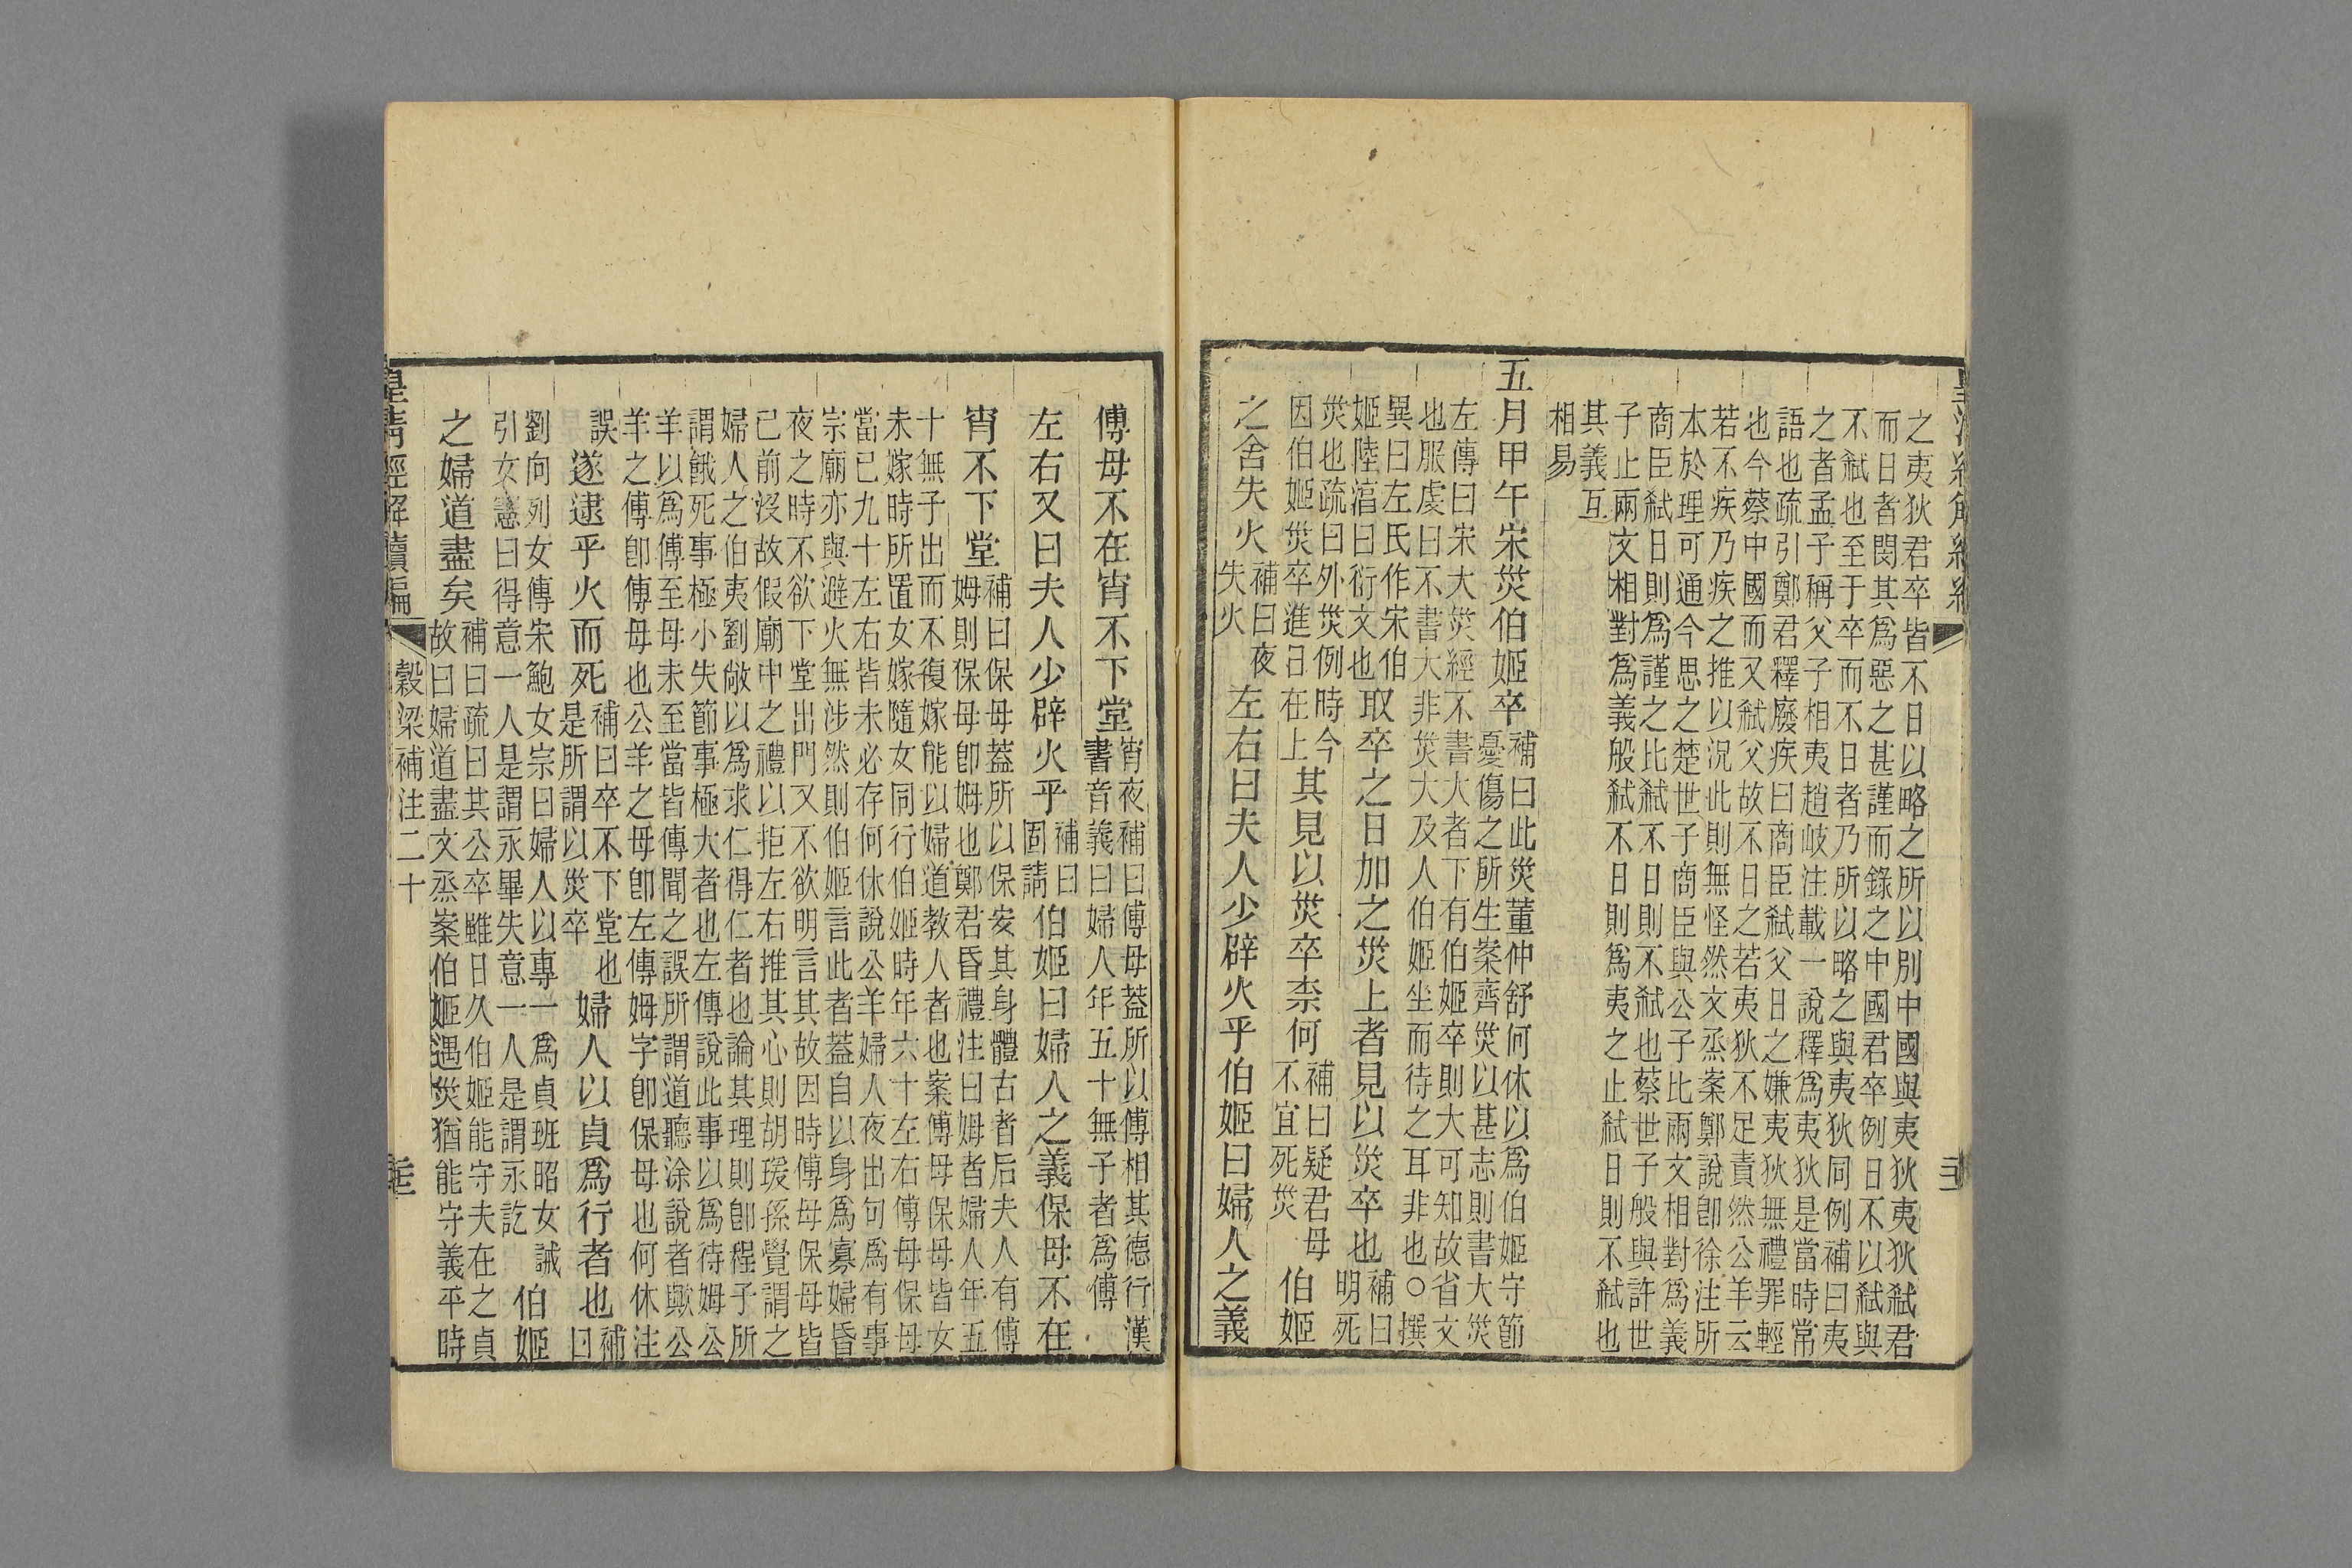 之夷狄君卒皆不日以略之所以別中國與夷狄夷狄弒君
而日者閔其爲惡之甚謹而錄之中國君卒例日不以弒與
不弒也至于卒而不日者乃所以略之與夷狄同例補曰夷
之者孟子稱父子相夷趙岐注載一說釋爲夷狄是當時常
語也疏引鄭君釋廢疾曰商臣弒父日之嫌夷狄無禮罪輕
也今蔡中國而又弒父故不日之若夷狄不足責然公羊云
若不疾乃疾之推以況此則無怪然文烝案鄭說卽徐注所
本於理可通今思之楚世子商臣與公子比兩文相對爲義
商臣弒日則爲謹之比弒不日則不弒也蔡世子般與許世
子止兩文相對爲義般弒不日則爲夷之止弒日則不弒也
其義互
相易
五月甲午宋災伯姬卒
補曰此災董仲舒何休以爲伯姬守節
憂傷之所生案齊災以甚志則書大災
左傳曰宋大災經不書大者下有伯姬卒則大可知故省文
也服虔曰不書大非災大及人伯姬坐而待之耳非也○撰
異曰左氏作宋伯
姬陸淳曰衍文也
取卒之日加之災上者見以災卒也
補曰
明死
災也疏曰外災例時今
因伯姬災卒進日在上
其見以災卒柰何
補曰疑君母
不宜死災
伯姬
之舍失火
補曰夜
失火
左右曰夫人少辟火乎伯姬曰婦人之義
傅母不在宵不下堂
宵夜補曰傅母蓋所以傅相其德行漢
書音義曰婦人年五十無子者爲傅
左右又曰夫人少辟火乎
補曰
固請
伯姬曰婦人之義保母不在
宵不下堂
補曰保母蓋所以保安其身體古者后夫人有傅
姆則保母卽姆也鄭君昏禮注曰姆者婦人年五
十無子出而不復嫁能以婦道教人者也案傅母保母皆女
未嫁時所置女嫁隨女同行伯姬時年六十左右傅母保母
當已九十左右皆未必存何休說公羊婦人夜出句爲有事
宗廟亦與避火無涉然則伯姬言此者蓋自以身爲寡婦昏
夜之時不欲下堂出門又不欲明言其故因時傅母保母皆
已前沒故假廟中之禮以拒左右推其心則胡瑗孫覺謂之
婦人之伯夷劉敞以爲求仁得仁者也論其理則卽程子所
謂餓死事極小失節事極大者也左傳說此事以爲待姆公
羊以爲傅至母未至當皆傳聞之誤所謂道聽涂說者歟公
羊之傅卽傅母也公羊之母卽左傳姆字卽保母也何休注
誤
遂逮乎火而死
補曰卒不下堂也
是所謂以災卒
婦人以貞爲行者也
補
曰
劉向列女傳宋鮑女宗曰婦人以專一爲貞班昭女誡
引女憲曰得意一人是謂永畢失意一人是謂永訖
伯姬
之婦道盡矣
補曰疏曰其公卒雖日久伯姬能守夫在之貞
故曰婦道盡文烝案伯姬遇災猶能守義平時
皇清經解續編
穀梁補注二十